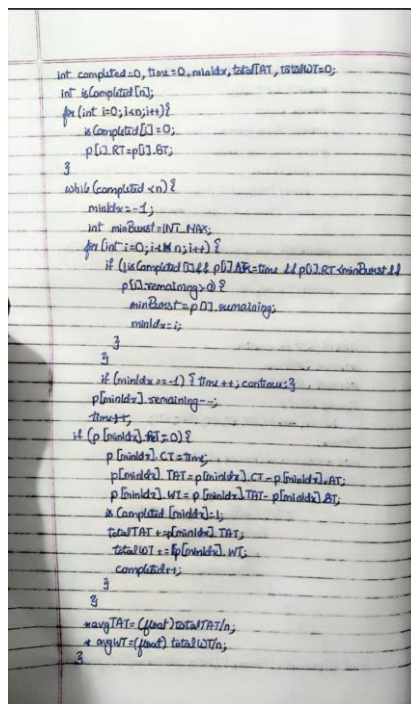 int completed=0, time=0, minIdx, totalTAT, totalWT=0;
int isCompleted[n];
for(int i=0;i<n;i++){
isCompleted[i]=0;
p[i].RT=p[i].BT;
}
while(completed<n){
minIdx=-1;
int minBurst=INT_MAX;
for(int i=0;i<n;i++){
if(!isCompleted[i]&& p[i].AT<=time && p[i].RT<minBurst &&
p[i].remaining>0){
minBurst=p[i].remaining;
minIdx=i;
}
}
if(minIdx==-1){time++;continue;}
p[minIdx].remaining--;
time++;
if(p[minIdx].RT=0){
p[minIdx].CT=time;
p[minIdx].TAT=p[minIdx].CT-p[minIdx].AT;
p[minIdx].WT=p[minIdx].TAT-p[minIdx].BT;
isCompleted[minIdx]=1;
totalTAT+=p[minIdx].TAT;
totalWT+=p[minIdx].WT;
completed++;
}
}
*avgTAT=(float)totalTAT/n;
*avgWT=(float)totalWT/n;
}